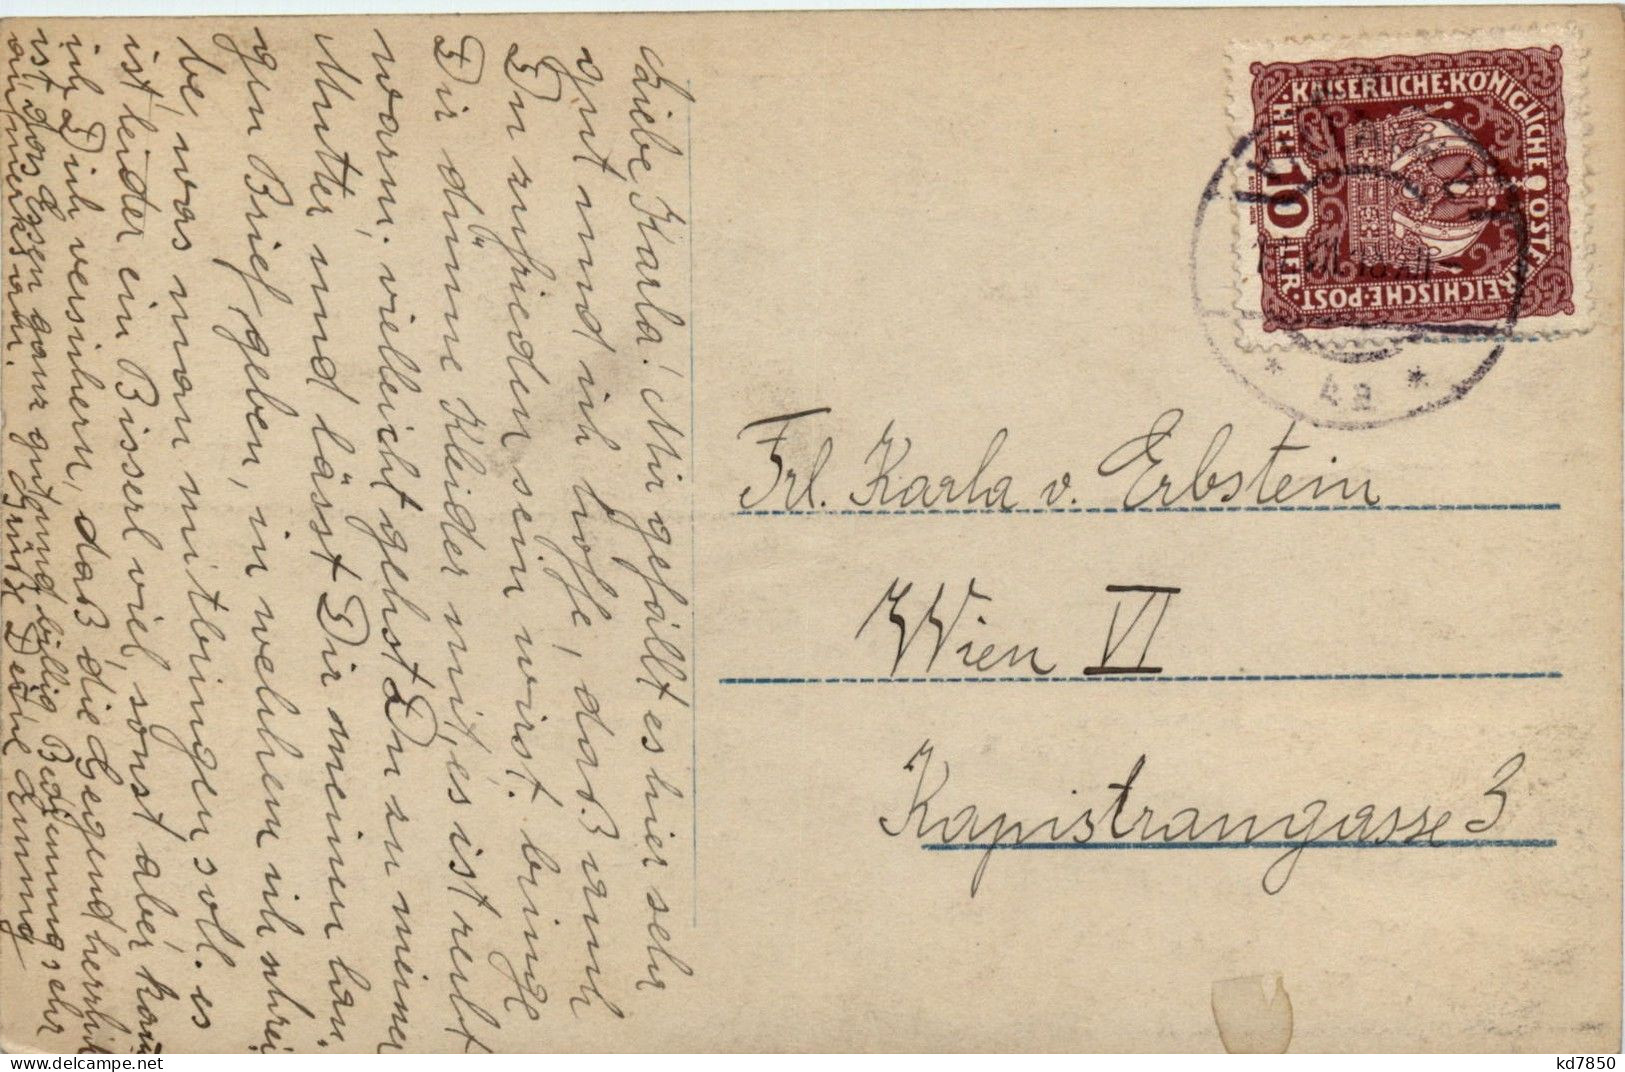 Liebe Karla! Mir gefällt es hier sehr
gut und ich hoffe, daß auch
Du zufrieden sein wirst. bringe
Dir dünne Kleider mit, es ist recht
warm, vielleicht gehst Du zu meiner
Mutter und lässt Dir meinen lan-
gen Brief geben, in welchem ich schrei-
be, was man mitbringen soll. es
ist leider ein Bisserl viel, sonst aber kann
ich Dich versichern, daß die Gegend herrlich
ist, das Essen ganz gut und billig Bedienung sehr
aufmerksam. Grüße Deine
KAISERLICHE·KÖNIGLICHE ÖSTERREICHISCHE·POST·
·HELLER·
10
4a
Frl. Karla v. Erbstein
Wien VI
Kapistrangasse 3
kd7850